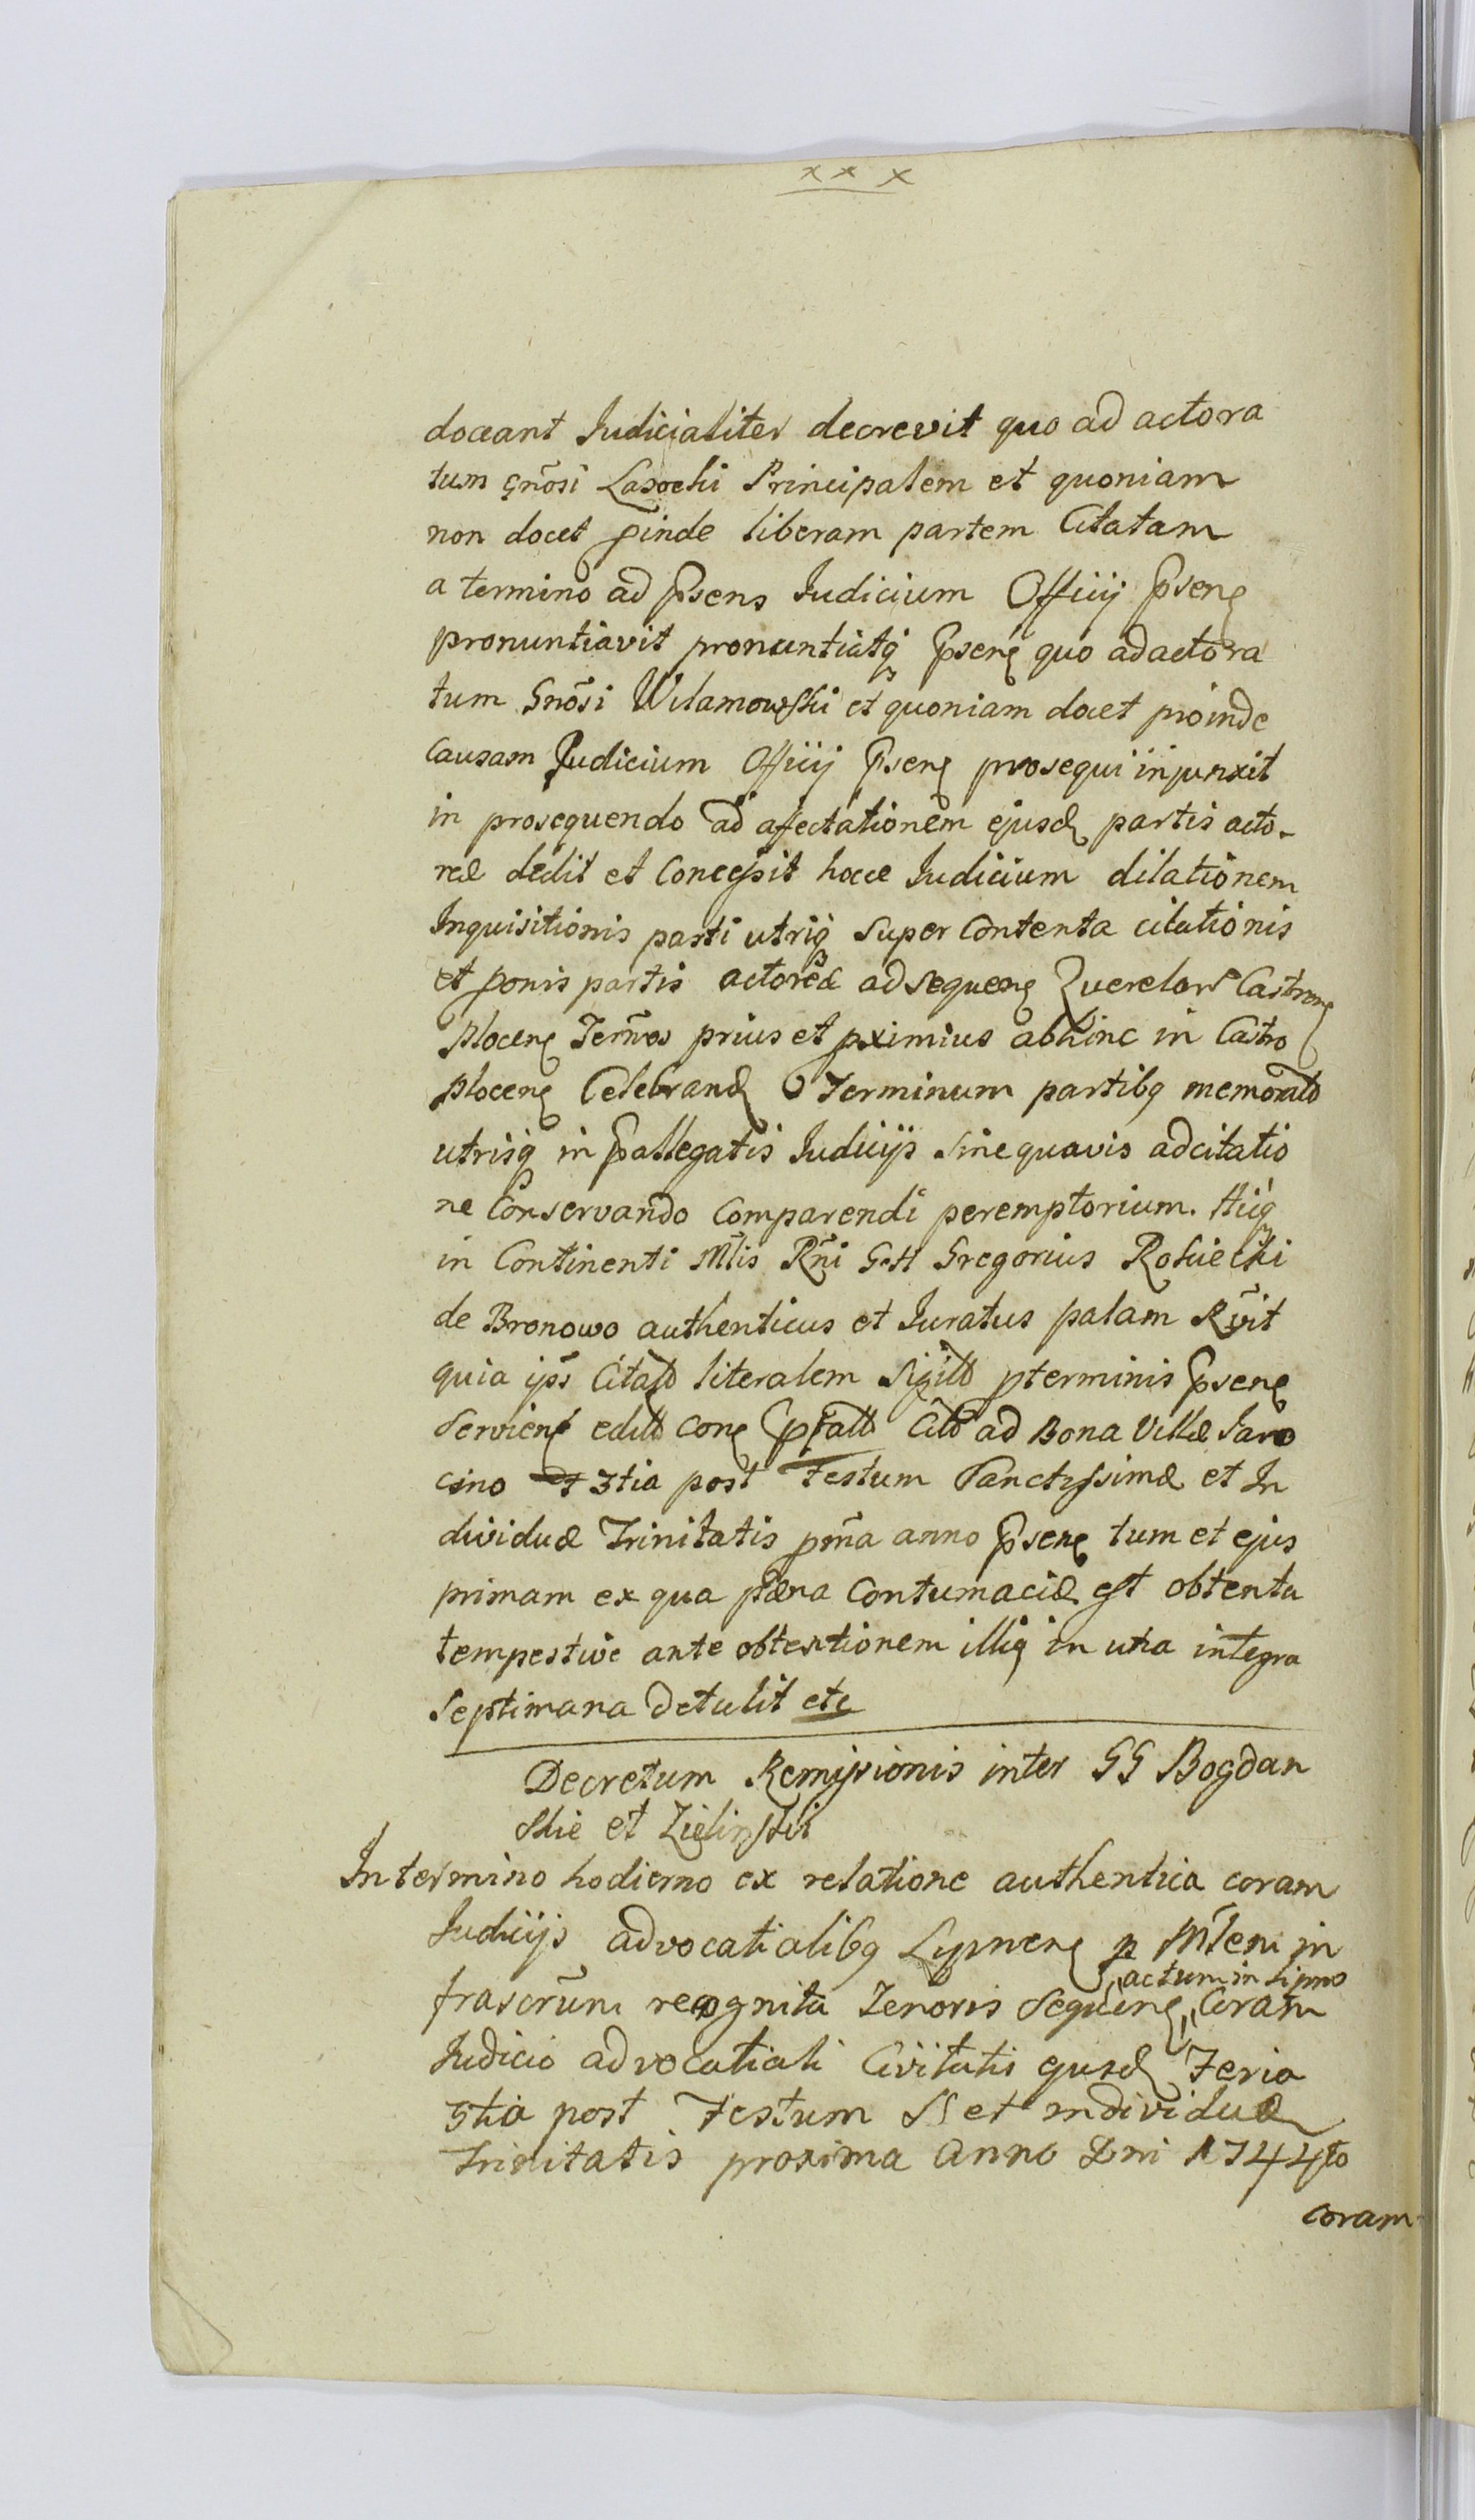 x x x
doceant Judicialiter decrevit quo ad actora
tum gñosi Lasocki Principalem et quoniam
non docet pinde liberam partem Citatam
a termino ad psens Judicium Officij psenę
pronuntiavit pronuntiatq psenę quo ad actora
tum Gnõsi Wilamowski et quoniam docet proinde
causam Judicium Officij psenę prosequi injunxit
in prosequendo ad afectationem ejusd partis acto-
reæ dedit et Concessit hocce Judicium dilationem
Inquisitionis parti utriq super Contenta citationis
et ponis partis actoreæ ad sequenę Querelar Castrenę
Plocenę Termos prius et pximius abhinc in Castro
Plocenę Celebrand Terminum partibq memorato
utrisq in pallegatis Judicijs sine quavis adcitatio
ne Conservando Comparendi peremptorium. Hicq
in Continenti Mtis Rñi G H Gregorius Rościecki
de Bronowo authenticus et Juratus palam Rvit
quia ips literalem pterminis psenę
servienę ad Bona Villæ Saro
cino 3tia post Festum Sanctissimæ et In
dividuæ Trinitatis pma anno psenę tum et ejus
primam ex qua pæna Contumaciæ est obtenta
tempestive ante obtentionem illiq in una integra
septimana detulit etc
Decretum Remissionis inter GG Bogdan
skie et Zielinski
In termino hodierno ex relatione authentica coram
Judicijs advocatialibq Lypnenę p Mtem in
frascrum recognita Tenoris sequenę "actum in Lipno" Coram
Judicio advocatiali Civitatis ejusd Feria
3tia post Festum SS et individuæ
Trinitatis proxima Anno Dni 1744to
coram